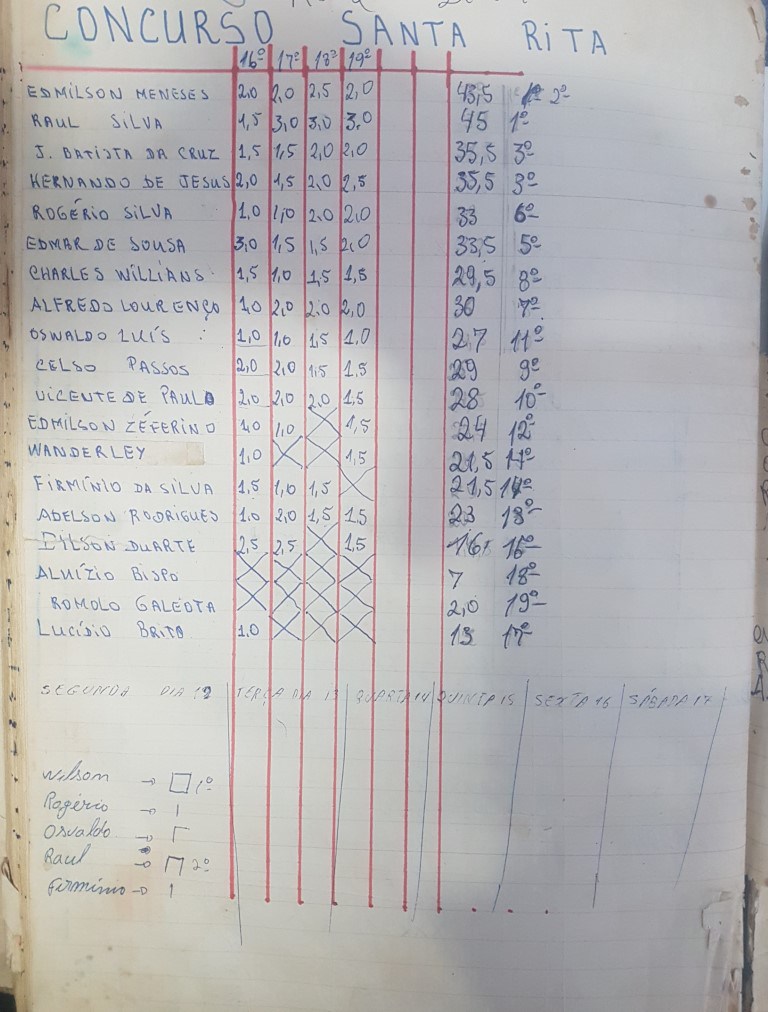 CONCURSO SANTA RITA
16º 17º 18º 19º
EDMILSON MENESES 2,0 2,0 2,5 2,0 43,5 2º
RAUL SILVA 1,5 3,0 3,0 3,0 45 1º
J. BATISTA DA CRUZ 1,5 1,5 2,0 2,0 35,5 3º
HERNANDO DE JESUS 2,0 1,5 2,0 2,5 35,5 3º
ROGÉRIO SILVA 1,0 1,0 2,0 2,0 33 6º
EDMAR DE SOUSA 3,0 1,5 1,5 2,0 33,5 5º
CHARLES WILLIANS 1,5 1,0 1,5 1,5 29,5 8º
ALFREDO LOURENÇO 1,0 2,0 2,0 2,0 30 7º
OSWALDO LUÍS 1,0 1,0 1,5 1,0 27 11º
CELSO PASSOS 2,0 2,0 1,5 1,5 29 9º
VICENTE DE PAULO 2,0 2,0 2,0 1,5 28 10º
EDMILSON ZÉFERINO 1,0 1,0 X 1,5 24 12º
WANDERLEY 1,0 X X 1,5 21,5
FIRMÍNIO DA SILVA 1,5 1,0 1,5 X 21,5 14º
ADELSON RODRIGUES 1,0 2,0 1,5 1,5 23 13º
DUARTE 2,5 2,5 X 1,5 16
ALUÍZIO BISPO X X X X 7 18º
ROMOLO GALEOTA X X X X 2,0 19º
LUCÍDIO BRITO 1,0 X X X 13 17º
SEGUNDA DIA TERÇA DIA 13 QUARTA 14 QUINTA 15 SEXTA 16 SÁBADA 17
Wilson → 1º
Rogério →
Osvaldo →
Raul → 2º
Firmínio →